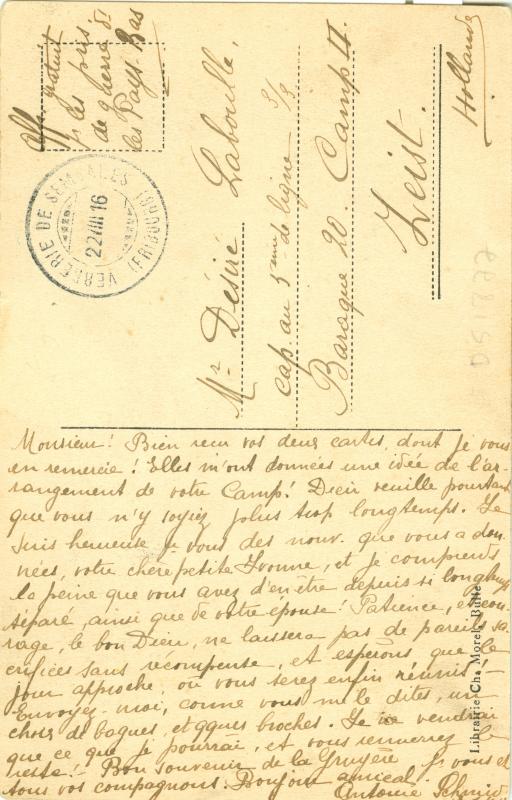 Offr. gratuit
p. les pris.
de guerre ds
les Pays Bas
VERRERIE DE SEMSALES (FRIBOURG)
22 VIII 16
Mr Désiré Laboulle,
cap. au 5me de ligne 3/3
Baraque 20. Camp II
Zeist.
Hollande
Monsieur! Bien reçu vos deux cartes, dont je vous
en remercie! Elles m'ont données une idée de l'ar-
rangement de votre Camp! Dieu veuille pourtant
que vous n'y soyiez plus trop longtemps. Je
suis heureuse p. vous des nouv. que vous a don-
nées, votre chère petite Yvonne, et je comprends
la peine que vous avez d'en être depuis si longtemps
séparé, ainsi que de votre epouse! Patience, et cou-
rage, le bon Dieu, ne laissera pas de pareils sa-
crifices sans recompense, et esperons que le
jour approche, où vous serez enfin réunis!-
Envoyez-moi, comme vous me le dites, un
choix de bagues, et qques broches. Je ve vendrai
que ce que je pourrai, et vous renverrez le
reste! - Bon souvenir de la Gruyère p. vous et
tous vos compagnons. Bonjour amical.
Antoinie
Librairie Ch. Morel, Bulle